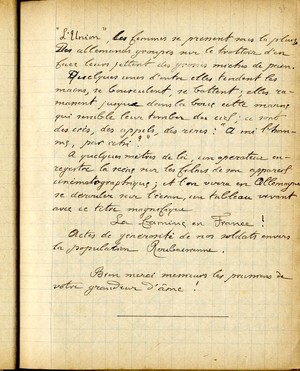 "L'Union" les femmes se pressent sous la pluie.
Des allemands groupés sur le trottoir d'en
face leur jettent des grosses miches de pain.
Quelques unes d'entre elles tendent les
mains, se bousculent, se battent, elles ra-
massent jusque dans la boue cette manne
qui semble leur tomber du ciel, ce sont
des cris, des appels, des rires: A mi l'hom-
me, par ichi!"
A quelques mètres de là, un opérateur en-
registre la scène sur les films de son appareil
cinématographique, et l'on verra en Allemagne
se dérouler sur l'écran, un tableau vivant
avec ce titre magnifique
La Famine en France!
Actes de générosité de nos soldats envers
la population Roubaisienne.
Bien merci messieurs les prussiens de
votre grandeur d'âme!